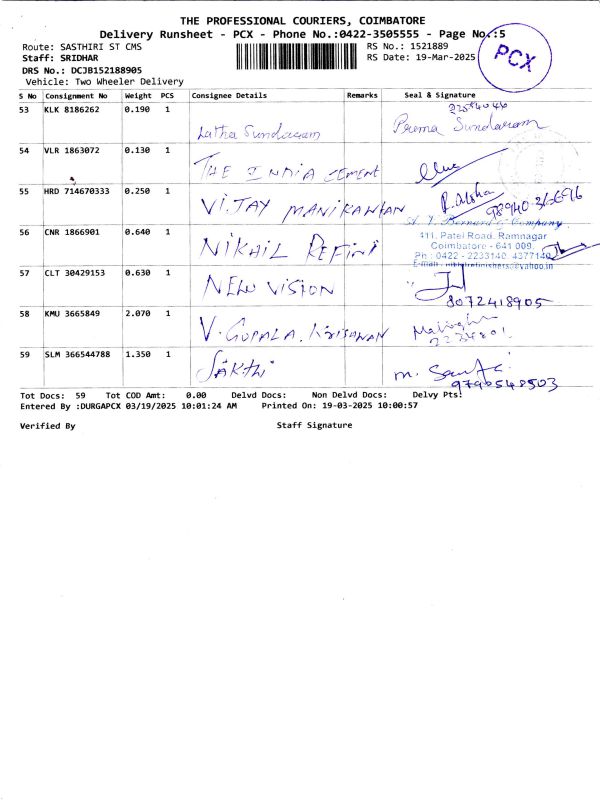 THE PROFESSIONAL COURIERS, COIMBATORE
Delivery Runsheet - PCX - Phone No.:0422-3505555 - Page No.:5
PCX
Route: SASTHIRI ST CMS
RS No.: 1521889
Staff: SRIDHAR
RS Date: 19-Mar-2025
DRS No.: DCJB152188905
Vehicle: Two Wheeler Delivery
S No Consignment No Weight PCS Consignee Details Remarks Seal & Signature
53 KLK 8186262 0.190 1 Latha Sundaram Prema Sundaram
54 VLR 1863072 0.130 1 THE INDIA CEMENT
55 HRD 714670333 0.250 1 VIJAY MANIKANTAN
56 CNR 1866901 0.640 1 NIKHIL REFINI
A. Y. Bernard & Company
411, Patel Road, Ramnagar
Coimbatore - 641 009.
Ph : 0422 - 2233140, 4377140
E-mail : nikhilrefinishers@yahoo.in
57 CLT 30429153 0.630 1 NEW VISION 8072418905
58 KMU 3665849 2.070 1 V. GOPALA. KRISHNAN
59 SLM 366544788 1.350 1 SAKTHI
Tot Docs: 59 Tot COD Amt: 0.00 Delvd Docs: Non Delvd Docs: Delvy Pts:
Entered By :DURGAPCX 03/19/2025 10:01:24 AM Printed On: 19-03-2025 10:00:57
Verified By Staff Signature